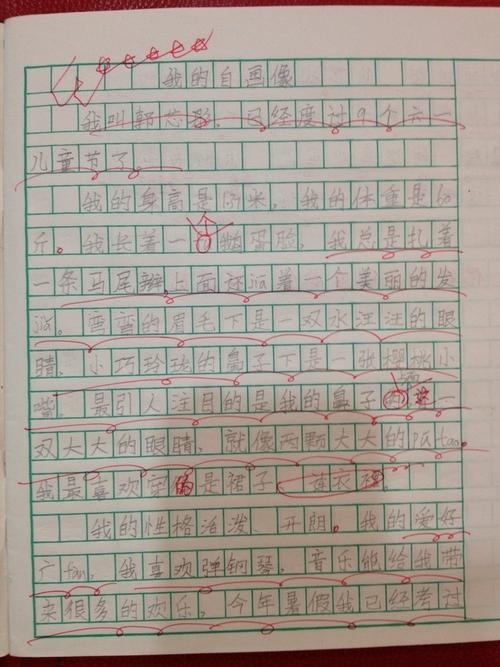 我的自画像
我叫郭芯彤，已经度过9个六一
儿童节了。
我的身高是1.31米，我的体重是60
斤。我长着一鹅蛋脸，我总是扎着
一条马尾辫，上面还jiā着一个美丽的发
jiā。弯弯的眉毛下是一双水汪汪的眼
睛，小巧玲珑的鼻子下是一张樱桃小
嘴。最引人注目的是我的鼻子着一
双大大的眼睛，就像两颗大大的pú tao。
我最喜欢穿的是裙子、连衣裙。
我的性格活泼、开朗。我的爱好
广fàn，我喜欢弹钢琴，音乐能给我带
来很多的欢乐，今年暑假我已经考过